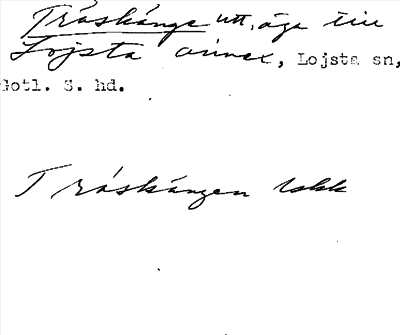 Träskänge utt, äga till
Lojsta annex, Lojsta sn,
Gotl. S. hd.
Träskängen